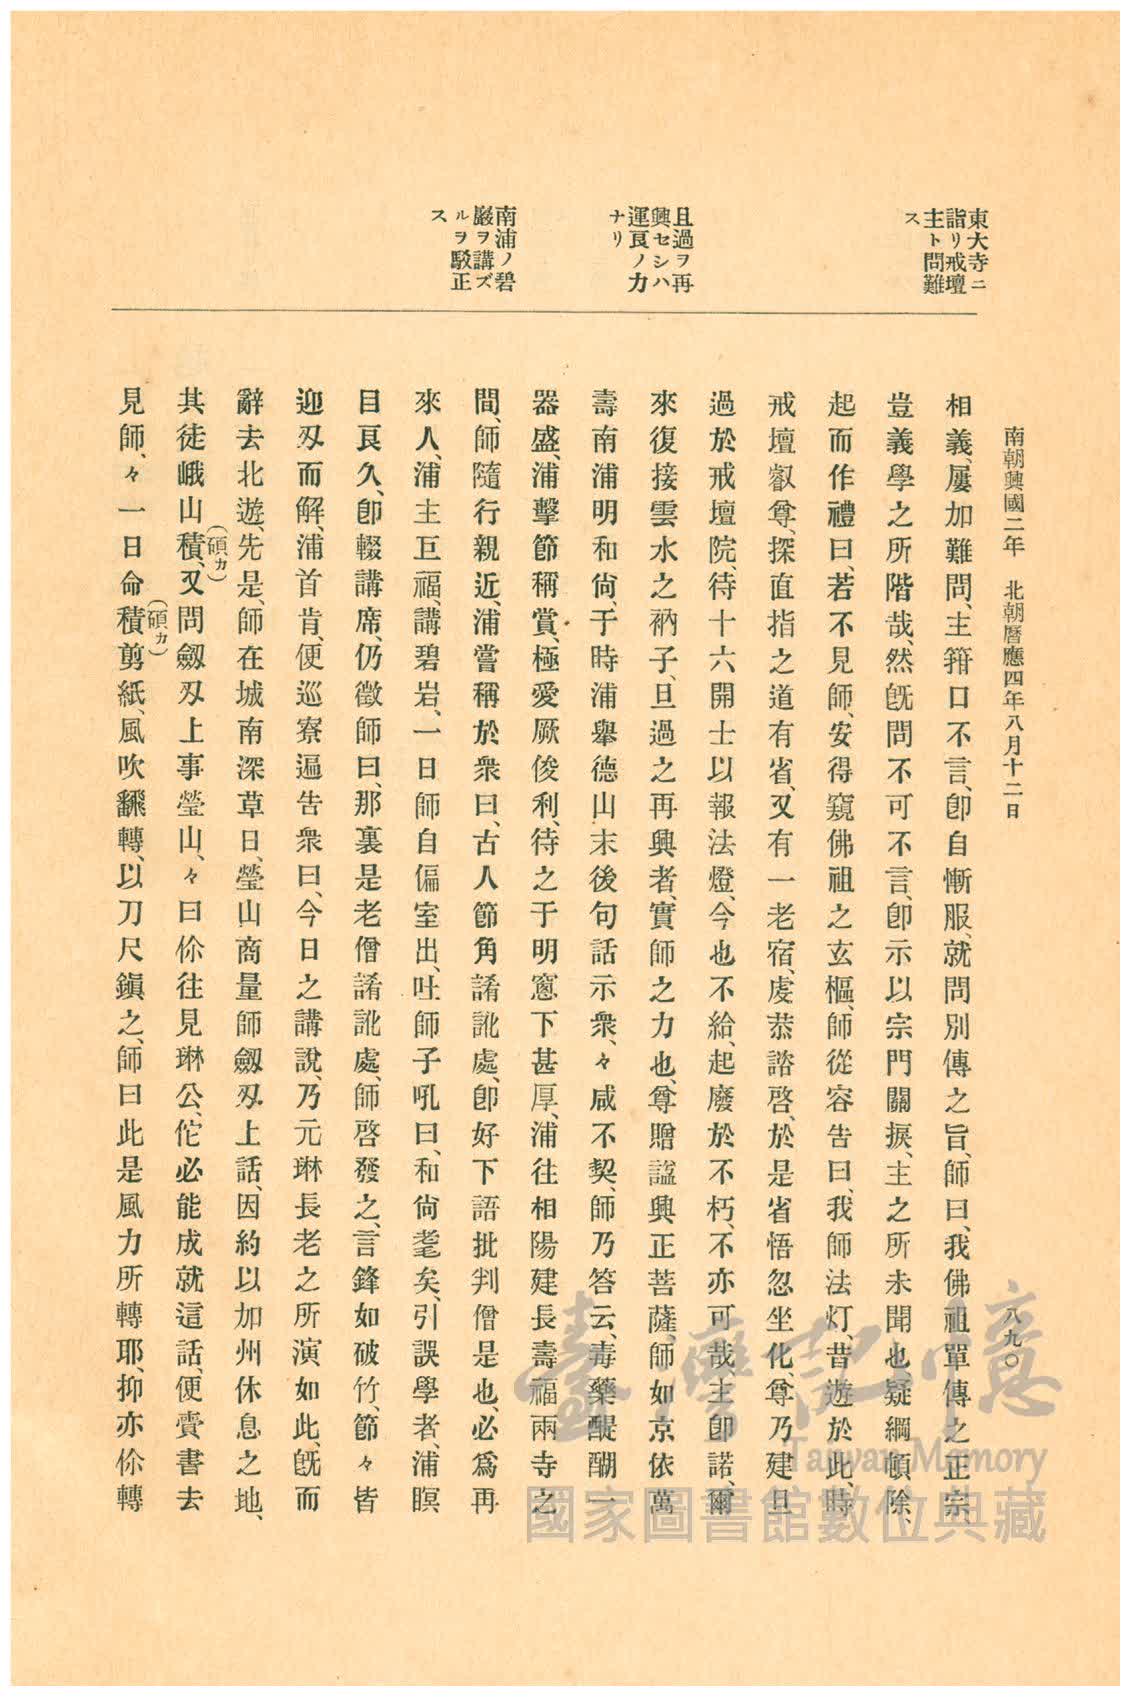 南朝興國二年　北朝曆應四年八月十二日
八九〇
東大寺ニ
詣リ戒壇
主ト問難
ス
且過ヲ再
興セシハ
運良ノ力
ナリ
南浦ノ碧
巖ヲ講ズ
ルヲ駁正
ス
相義、屢加難問、主箝口不言、卽自慚服、就問別傳之旨、師曰、我佛祖單傳之正宗、
豈義學之所階哉、然旣問不可不言、卽示以宗門關捩、主之所未聞也、疑網頓除、
起而作禮曰、若不見師、安得窺佛祖之玄樞、師從容告曰、我師法灯、昔遊於此、時
戒壇叡尊、探直指之道有省、又有一老宿、虔恭諮啓、於是省悟忽坐化、尊乃建旦
過於戒壇院、待十六開士以報法燈、今也不給、起廢於不朽、不亦可哉、主卽諾、爾
來復接雲水之衲子、旦過之再興者、實師之力也、尊贈謚興正菩薩、師如京依萬
壽南浦明和尙、于時浦舉德山末後句話示衆、々咸不契、師乃答云、毒藥醍醐一
器盛、浦擊節稱賞、極愛厥俊利、待之于明窓下甚厚、浦往相陽建長壽福兩寺之
間、師隨行親近、浦嘗稱於衆曰、古人節角誵訛處、卽好下語批判僧是也、必爲再
來人、浦主巨福、講碧岩、一日師自偏室出、吐師子吼曰、和尙耄矣、引誤學者、浦瞑
目良久、卽輟講席、仍徵師曰、那裏是老僧誵訛處、師啓發之、言鋒如破竹、節々皆
迎刄而解、浦首肯、便巡寮遍告衆曰、今日之講說、乃元琳長老之所演如此、旣而
辭去北遊、先是、師在城南深草日、瑩山商量師劔刄上話、因約以加州休息之地、
其徒峨山積、又問劔刄上事瑩山、々曰你往見琳公、佗必能成就這話、便賷書去
（碩カ）
見師、々一日命積剪紙、風吹飜轉、以刀尺鎭之、師曰此是風力所轉耶、抑亦你轉
（碩カ）
臺灣記憶
Taiwan Memory
國家圖書館數位典藏